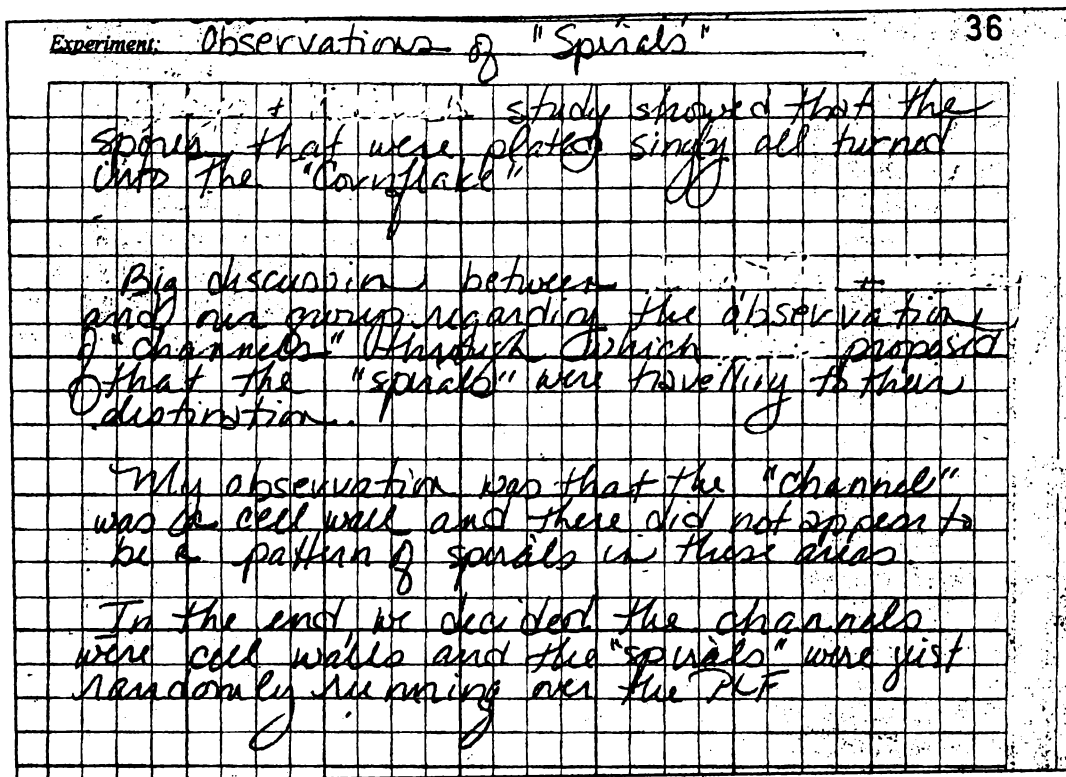 36
Experiment: Observations of "Spirals"
+ study showed that the
spores that were plated singly all turned
into the "Cornflake"
Big discussion between +
and our group regarding the observation
of "channels" through which proposed
that the "spirals" were travelling to their
distination.
My observation was that the "channel"
was a cell wall and there did not appear to
be a pattern of spirals in these areas.
In the end we decided the channels
were cell walls and the "spirals" were just
randomly running over the PCF